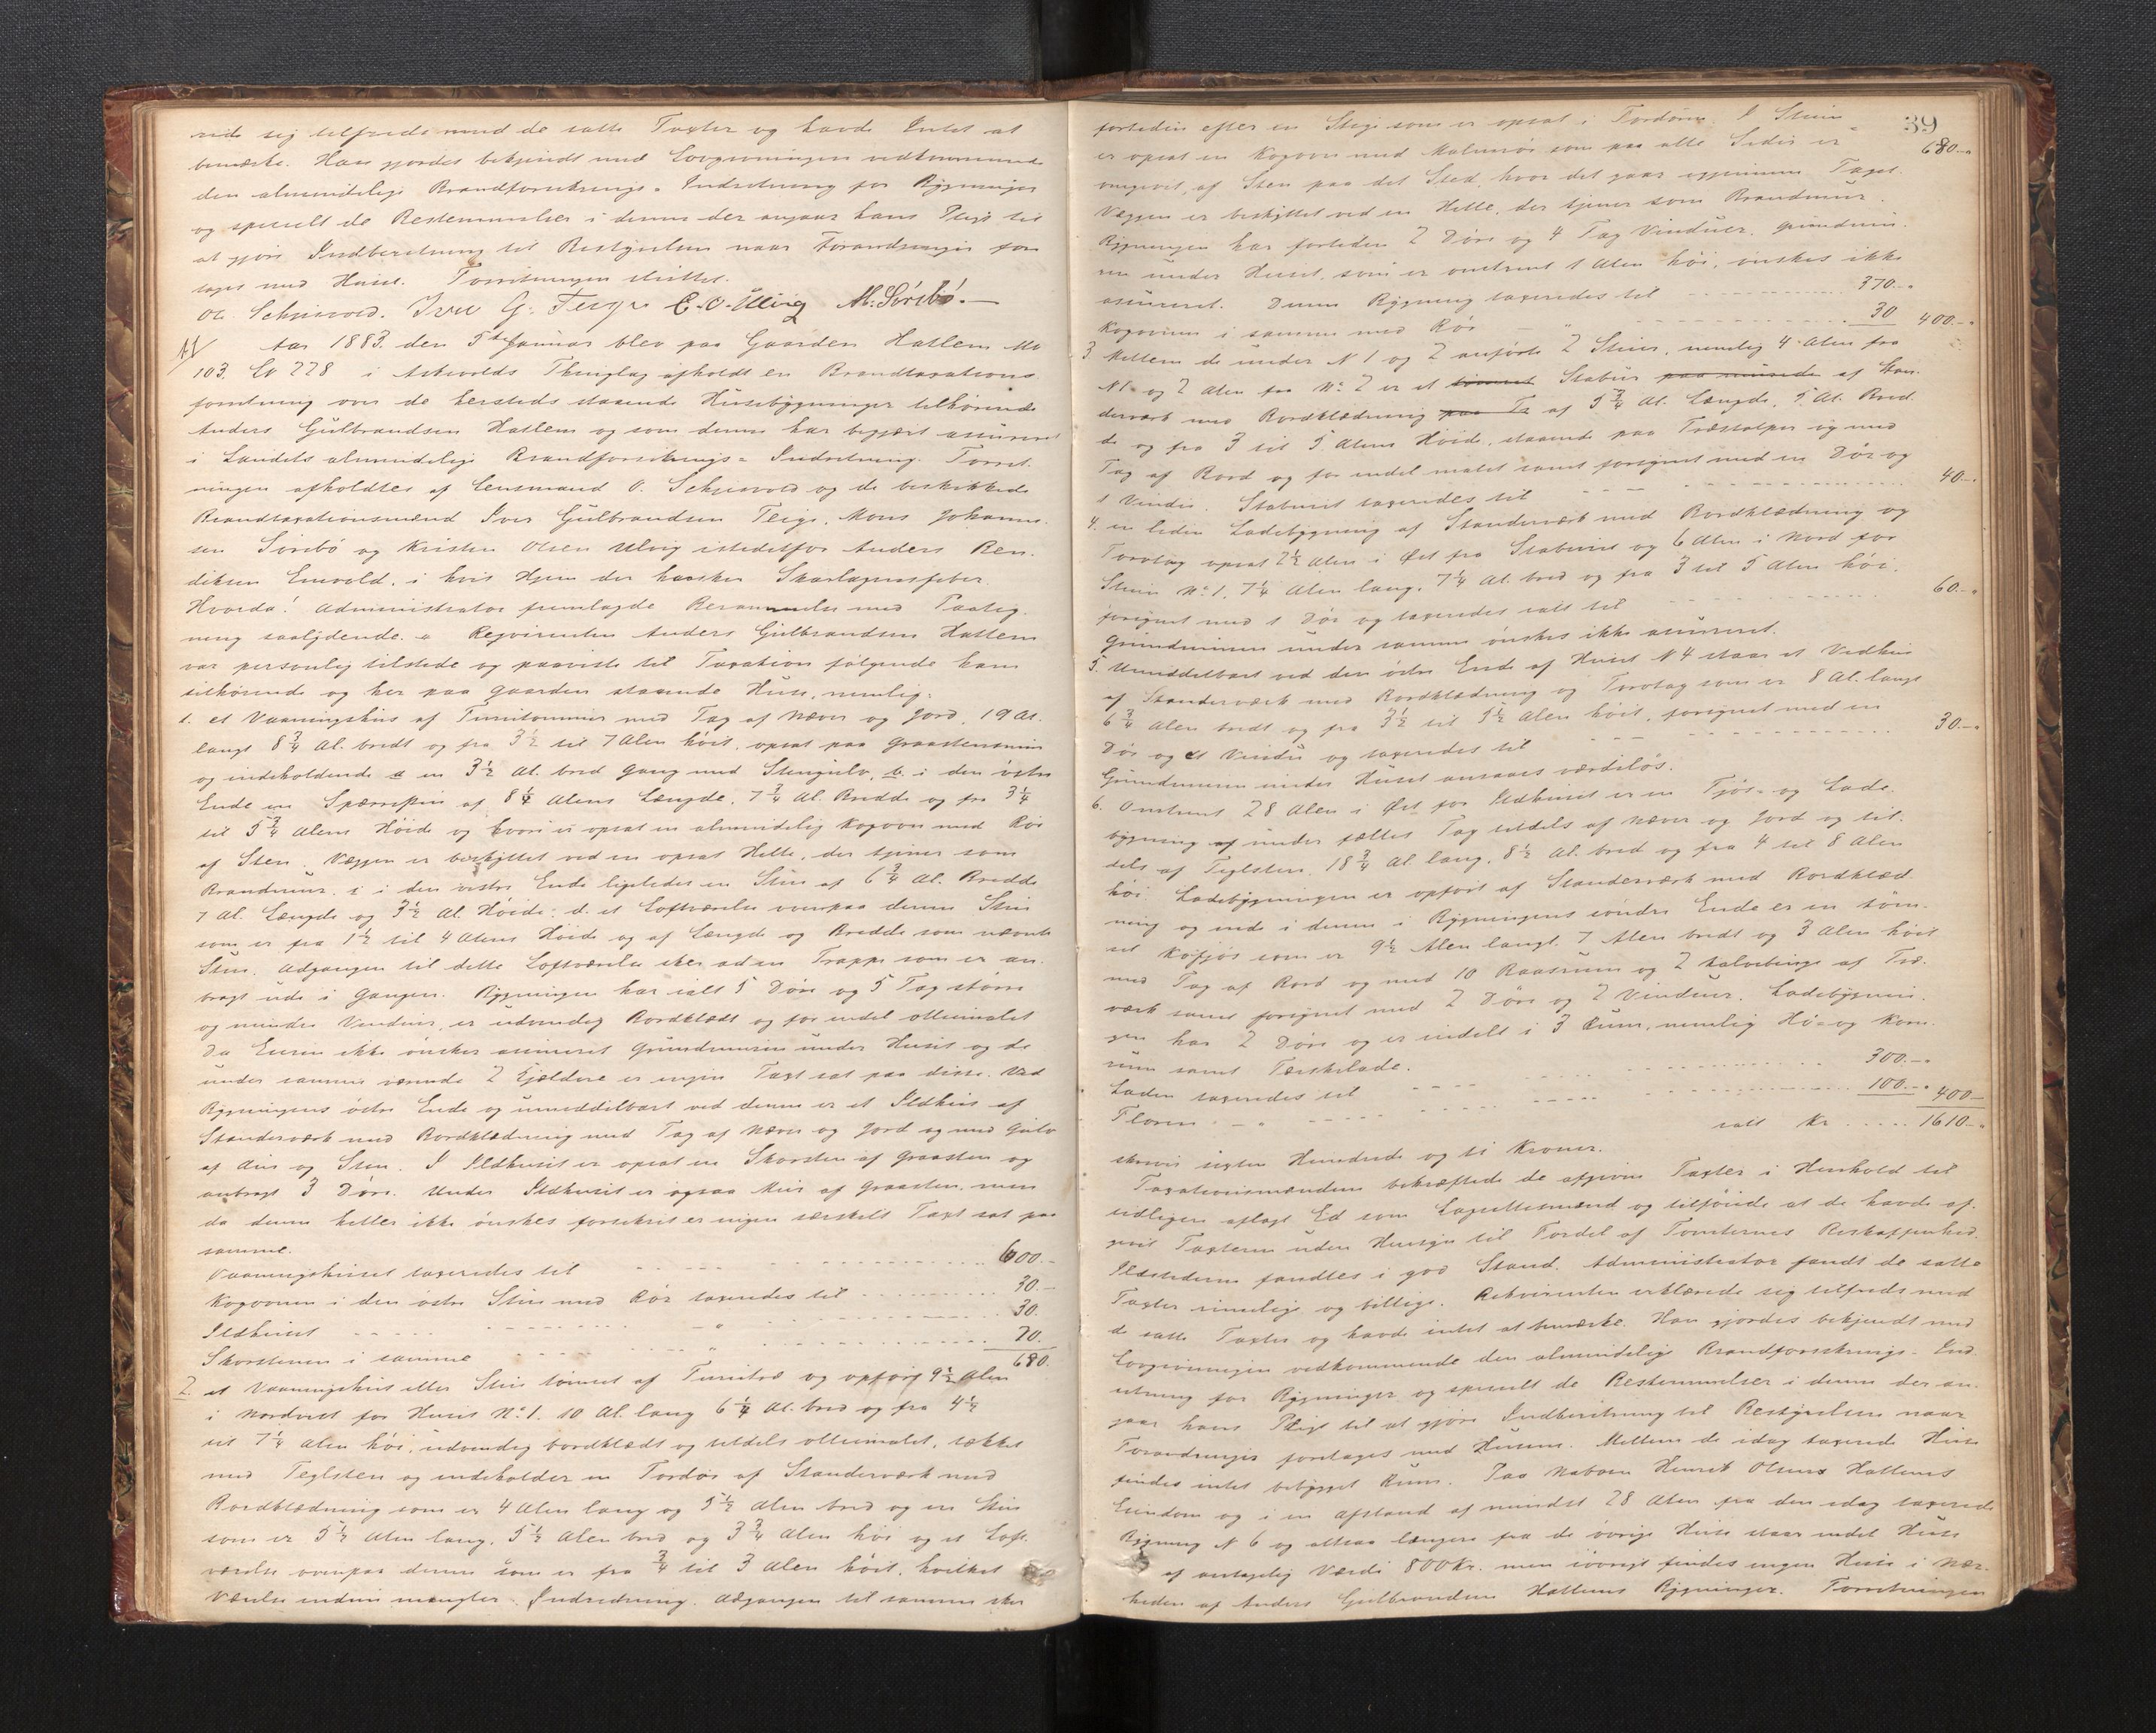 sig tilfreds med de satte Taxter og havde Intet at
bemærke. Han gjordes bekjendt med Lovgivningen vedkommende
den almindelige Brandforsikrings-Indretning for Bygninger
og specielt de Bestemmelser i denne der angaar hans Pligt til
at gjøre Indberetning til Bestyrelsen naar Forandringer fore
tages med Huset. Forretningen sluttet.
Iver G. Teige C. O. Ulvig M. Sörebö.
Aar 1883 den 5te Januar blev paa Gaarden Hatlem M.No
103. Lv 228 i Askvolds Thinglag afholdt en Brandtaxations
forretning over de hersteds staaende Husebygninger tilhörende
Anders Gulbrandsen Hatlem og som denne har begjært assureret
i Landets almindelige Brandforsikrings-Indretning. Forret-
ningen afholdtes af Lensmand O. Schjesvold og de beskikkede
Brandtaxationsmænd Iver Gulbrandsen Teige, Mons Johannes-
sen Sörebö og Kristen Olsen Ulvig istedetfor Anders Ben-
diksen Eivold, i hvis Hjem der hersker Skarlagensfeber.
Hvorda: Administrator fremlagde Berammelse med Paateg-
ning saalydende. Reqvirenten Anders Gulbrandsen Hatlem
var personlig tilstede og paaviste til Taxation fölgende ham
tilhörende og her paa Gaarden staaende Huse, nemlig:
1. et Vaaningshus af Furutömmer med Tag af Næver og Jord, 19 Al.
langt 8 3/4 Al. bredt og fra 3 1/2 til 7 Alen höit, opsat paa Graastensmur
og indeholdende a en 3 1/2 Al. bred Gang med Stengulv, b. i den östre
Ende en Spærrestue af 8 1/4 Alens Længde, 7 3/4 Al. Bredde og fra 3 1/4
til 5 3/4 Alens Höide og hvori er opsat en almindelig Kogovn med Rör
af Sten. Væggen er beskyttet ved en opsat Helle, der tjener som
Brandmur. c i den vestre Ende ligeledes en Stue af 6 3/4 Al. Bredde
7 Al. Længde og 3 1/2 Al. Höide; d. et Loftværelse ovenpaa denne Stue
som er fra 1 1/2 til 4 Alens Höide og af Længde og Bredde som nævnte
Stue. Adgangen til dette Loftværelse sker ad en Trappe som er an-
bragt ude i Gangen. Bygningen har ialt 5 Döre og 5 Fag större
og mindre Vinduer, er udvendig Bordklædt og for endel oliemalet
Da Eieren ikke önsker assureret Grundmuren under Huset og de
under samme værende 2 Kjeldere er ingen Taxt sat paa disse. Ved
Bygningens östre Ende og umiddelbart ved denne er et Ildhus af
Standerværk med Bordklædning med Tag af Næver og Jord og med Gulv
af Aur og Sten. I Ildhuset er opsat en Skorsten af Graasten og
anbragt 3 Döre. Under Ildhuset er ogsaa Mur af Graasten, men
da denne heller ikke önskes forsikret er ingen særskilt Taxt sat paa
samme.
Vaaningshuset taxeredes til 600.-
Kogovnen i den östre Stue med Rör taxeredes til 30.-
Ildhuset - - - " 30.
Skorstenen i samme - - " 20.
680.
2. et Vaaningshus eller Stue tömret af Furutræ og opfört 9 1/2 Alen
i Nordvest for Huset No. 1. 10 Al. lang 6 1/4 Al. bred og fra 4 1/2
til 7 1/4 Alen höi, udvendig bordklædt og tildels oliemalet, tækket
med Teglsten og indeholder en Fordör af Standerværk med
Bordklædning som er 4 Alen lang og 5 1/2 Alen bred og en Stue
som er 5 1/2 Alen lang, 5 1/2 Alen bred og 3 3/4 Alen höi og et Loft-
værelse ovenpaa denne som er fra 3/4 til 3 Alen höit, hvilket
Værelse endnu mangler Indredning. Adgangen til samme sker
39
fortiden efter en Stige som er opsat i Fordören. I Stuen
er opsat en Kogovn med Malmrör som paa alle Sider er
680.-
omgivet af Sten paa det Sted, hvor det gaar igjennem Taget.
Væggen er beskyttet ved en Helle, der tjener som Brandmur.
Bygningen har fortiden 2 Döre og 4 Fag Vinduer. Grundmu-
ren under Huset, som er omtrent 1 Alen höi, önskes ikke
assureret. Denne Bygning taxeredes til 370.-
Kogovnen i samme med Rör - " 30 400.-
3. Mellem de under N 1 og 2 anförte 2 Stuer, nemlig 4 Alen fra
N 1 og 2 Alen fra No. 2 er et tömret Stabur paa murede af Stan-
derværk med Bordklædning paa Tr af 5 3/4 Al. Længde, 5 Al. Bred-
de og fra 3 til 5 Alens Höide, staaende paa Træstolper og med
Tag af Bord og for endel malet samt forsynet med en Dör og
1 Vindu. Staburet taxeredes til 40.-
4. en liden Ladebygning af Standerværk med Bordklædning og
Torvtag opsat 2 1/2 Alen i Öst fra Staburet og 6 Alen i Nord for
Stuen No. 1, 7 1/4 Alen lang, 7 1/4 Al. bred og fra 3 til 5 Alen höi,
forsynet med 1 Dör og taxeredes ialt til 60.-
Grundmuren under samme önskes ikke assureret.
5. Umiddelbart ved den östre Ende af Huset N 4 staar et Vedhus
af Standerværk med Bordklædning og Torvtag som er 8 Al. langt
6 3/4 Alen bredt og fra 3 1/2 til 5 1/2 Alen höit, forsynet med en
Dör og et Vindu og taxeredes til 30.-
Grundmuren under Huset ansaaes værdilös.
6. Omtrent 28 Alen i Öst for Ildhuset er en Fjös- og Lade-
bygning af under fælles Tag tildels af Næver og Jord og til-
dels af Teglsten, 18 3/4 Al. lang, 8 1/2 Al. bred og fra 4 til 8 Alen
höi. Ladebygningen er opfört af Standerværk med Bordklæd-
ning og inde i denne i Bygningens söndre Ende er en töm-
ret Köfjös som er 9 1/2 Alen langt, 7 Alen bredt og 3 Alen höit
med Tag af Bord og med 10 Baasrum og 2 Kalvebinge af Træ-
værk samt forsynet med 2 Döre og 2 Vinduer. Ladebygnin-
gen har 2 Döre og er indelt i 3 Rum, nemlig Hö- og Korn-
rum samt Tærskelade.
Laden taxeredes til 300.-
Floren - " - 100.- 400.-
ialt Kr 1610.-
skriver sexten Hundrede og ti Kroner.
Taxationsmændene bekræftede de afgivne Taxter i Henhold til
tidligere aflagt Ed som Lagrettesmænd og tilföiede at de havde af-
givet Taxterne uden Hensyn til Fordel af Tomternes Beskaffenhed.
Ildstederne fandtes i god Stand. Administrator fandt de satte
Taxter rimelige og billige. Rekvirenten erklærede sig tilfreds med
de satte Taxter og havde intet at bemærke. Han gjordes bekjendt med
Lovgivningen vedkommende den almindelige Brandforsikrings-Ind-
retning for Bygninger og specielt de Bestemmelser i denne der an-
gaar hans Pligt til at gjöre Indberetning til Bestyrelsen naar
Forandringer foretages med Husene. Mellem de idag taxerede Huse
findes intet bebygget Rum. Paa Naboen Henrik Olsens Hatlems
Eiendom og i en Afstand af mindst 28 Alen fra den idag taxerede
Bygning N 6 og altsaa længere fra de övrige Huse staar endel Huse
af antagelig Værdi 800 Kr. men iövrigt findes ingen Huse i Nær-
heden af Anders Gulbrandsen Hatlems Bygninger. Forretningen